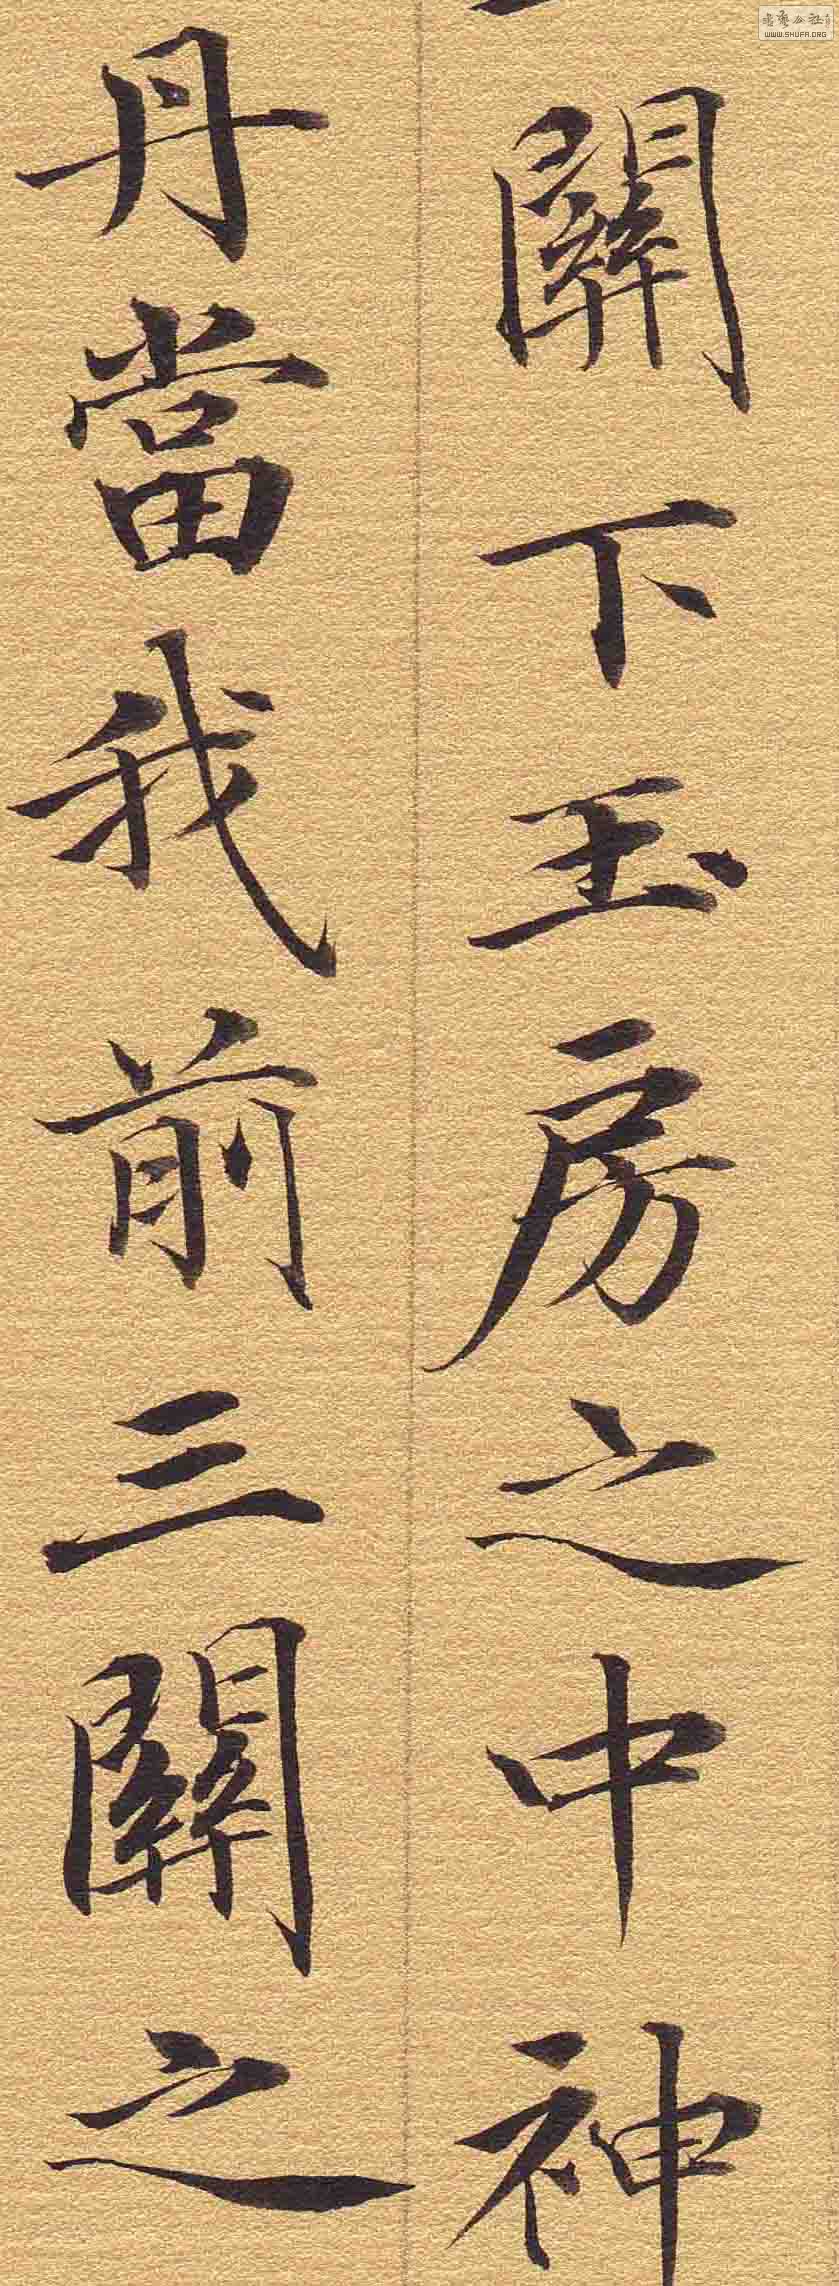 關下玉房之中神
丹當我前三關之
WWW.SHUFA.ORG